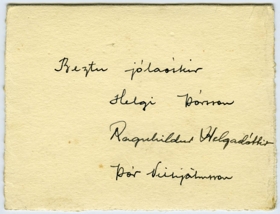 Beztu jólaóskir
Helgi Þórsson
Ragnhildur Helgadóttir
Þór Vilhjálmsson